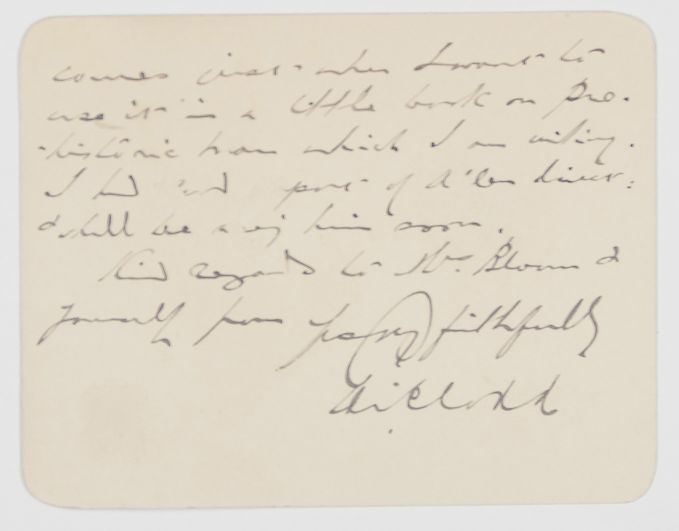 comes just when I want to
use it in a little book on Pre-
-historic man which I am writing.
I had read part of Allen's direct:
& shall be seeing him soon.
Kind regards to Mrs. Bloom &
yourself from yrs faithfully
Ed. Clodd